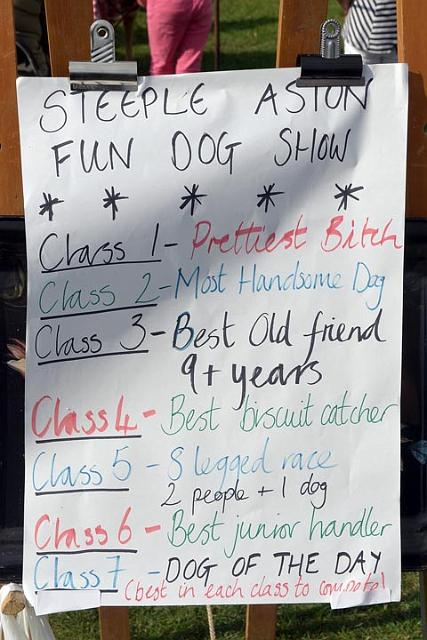 STEEPLE ASTON
FUN DOG SHOW
* * * * *
Class 1 - Prettiest Bitch
Class 2 - Most Handsome Dog
Class 3 - Best Old friend
9+ years
Class 4 - Best biscuit catcher
Class 5 - 8 legged race
2 people + 1 dog
Class 6 - Best junior handler
Class 7 - DOG OF THE DAY
(best in each class to